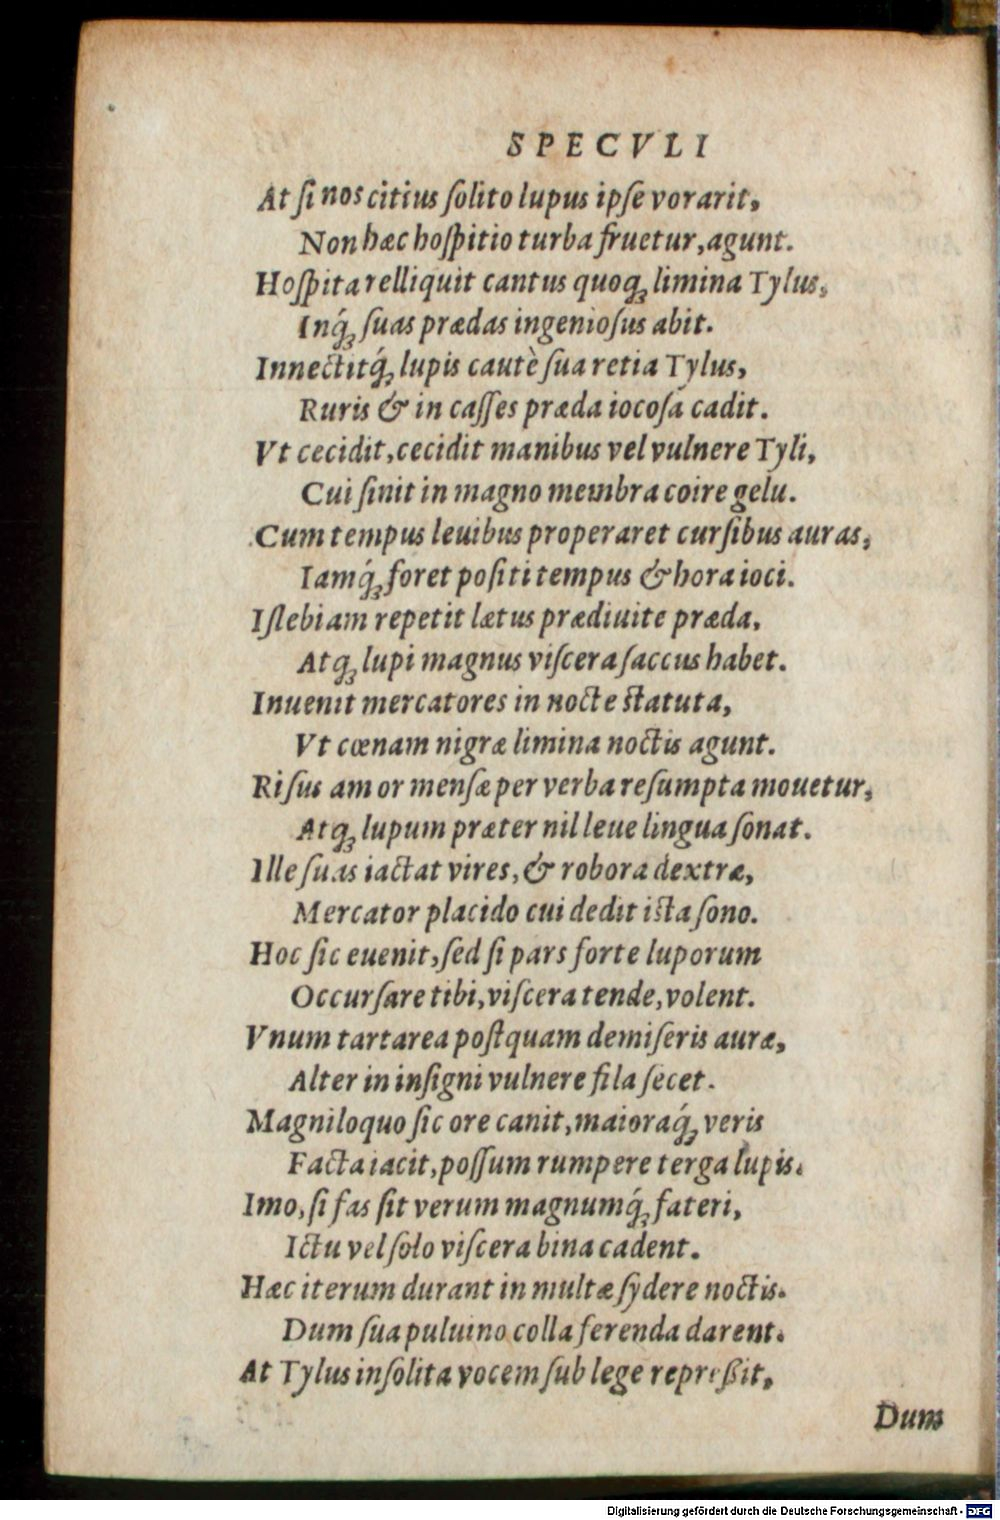 SPECVLI
At ſi nos citius ſolito lupus ipſe vorarit,
Non hæc hoſpitio turba fruetur, agunt.
Hoſpita relliquit cantus quoq; limina Tylus,
Inq́; ſuas prædas ingenioſus abit.
Innectitq́; lupis cautè ſua retia Tylus,
Ruris & in caſſes præda iocoſa cadit.
Vt cecidit, cecidit manibus vel vulnere Tyli,
Cui ſinit in magno membra coire gelu.
Cum tempus leuibus properaret curſibus auras,
Iamq́; foret poſiti tempus & hora ioci.
Iſlebiam repetit lætus prædiuite præda,
Atq; lupi magnus viſcera ſaccus habet.
Inuenit mercatores in nocte ſtatuta,
Vt cœnam nigræ limina noctis agunt.
Riſus amor menſæ per verba reſumpta mouetur,
Atq; lupum præter nil leue lingua ſonat.
Ille ſuas iactat vires, & robora dextræ,
Mercator placido cui dedit iſta ſono.
Hoc ſic euenit, ſed ſi pars forte luporum
Occurſare tibi, viſcera tende, volent.
Vnum tartarea poſtquam demiſeris auræ,
Alter in inſigni vulnere fila ſecet.
Magniloquo ſic ore canit, maioraq́; veris
Facta iacit, poſſum rumpere terga lupis.
Imo, ſi fas ſit verum magnumq́; fateri,
Ictu vel ſolo viſcera bina cadent.
Hæc iterum durant in multæ ſydere noctis.
Dum ſua puluino colla ferenda darent.
At Tylus inſolita vocem ſub lege repreßit,
Dum
Digitalisierung gefördert durch die Deutsche Forschungsgemeinschaft - DFG